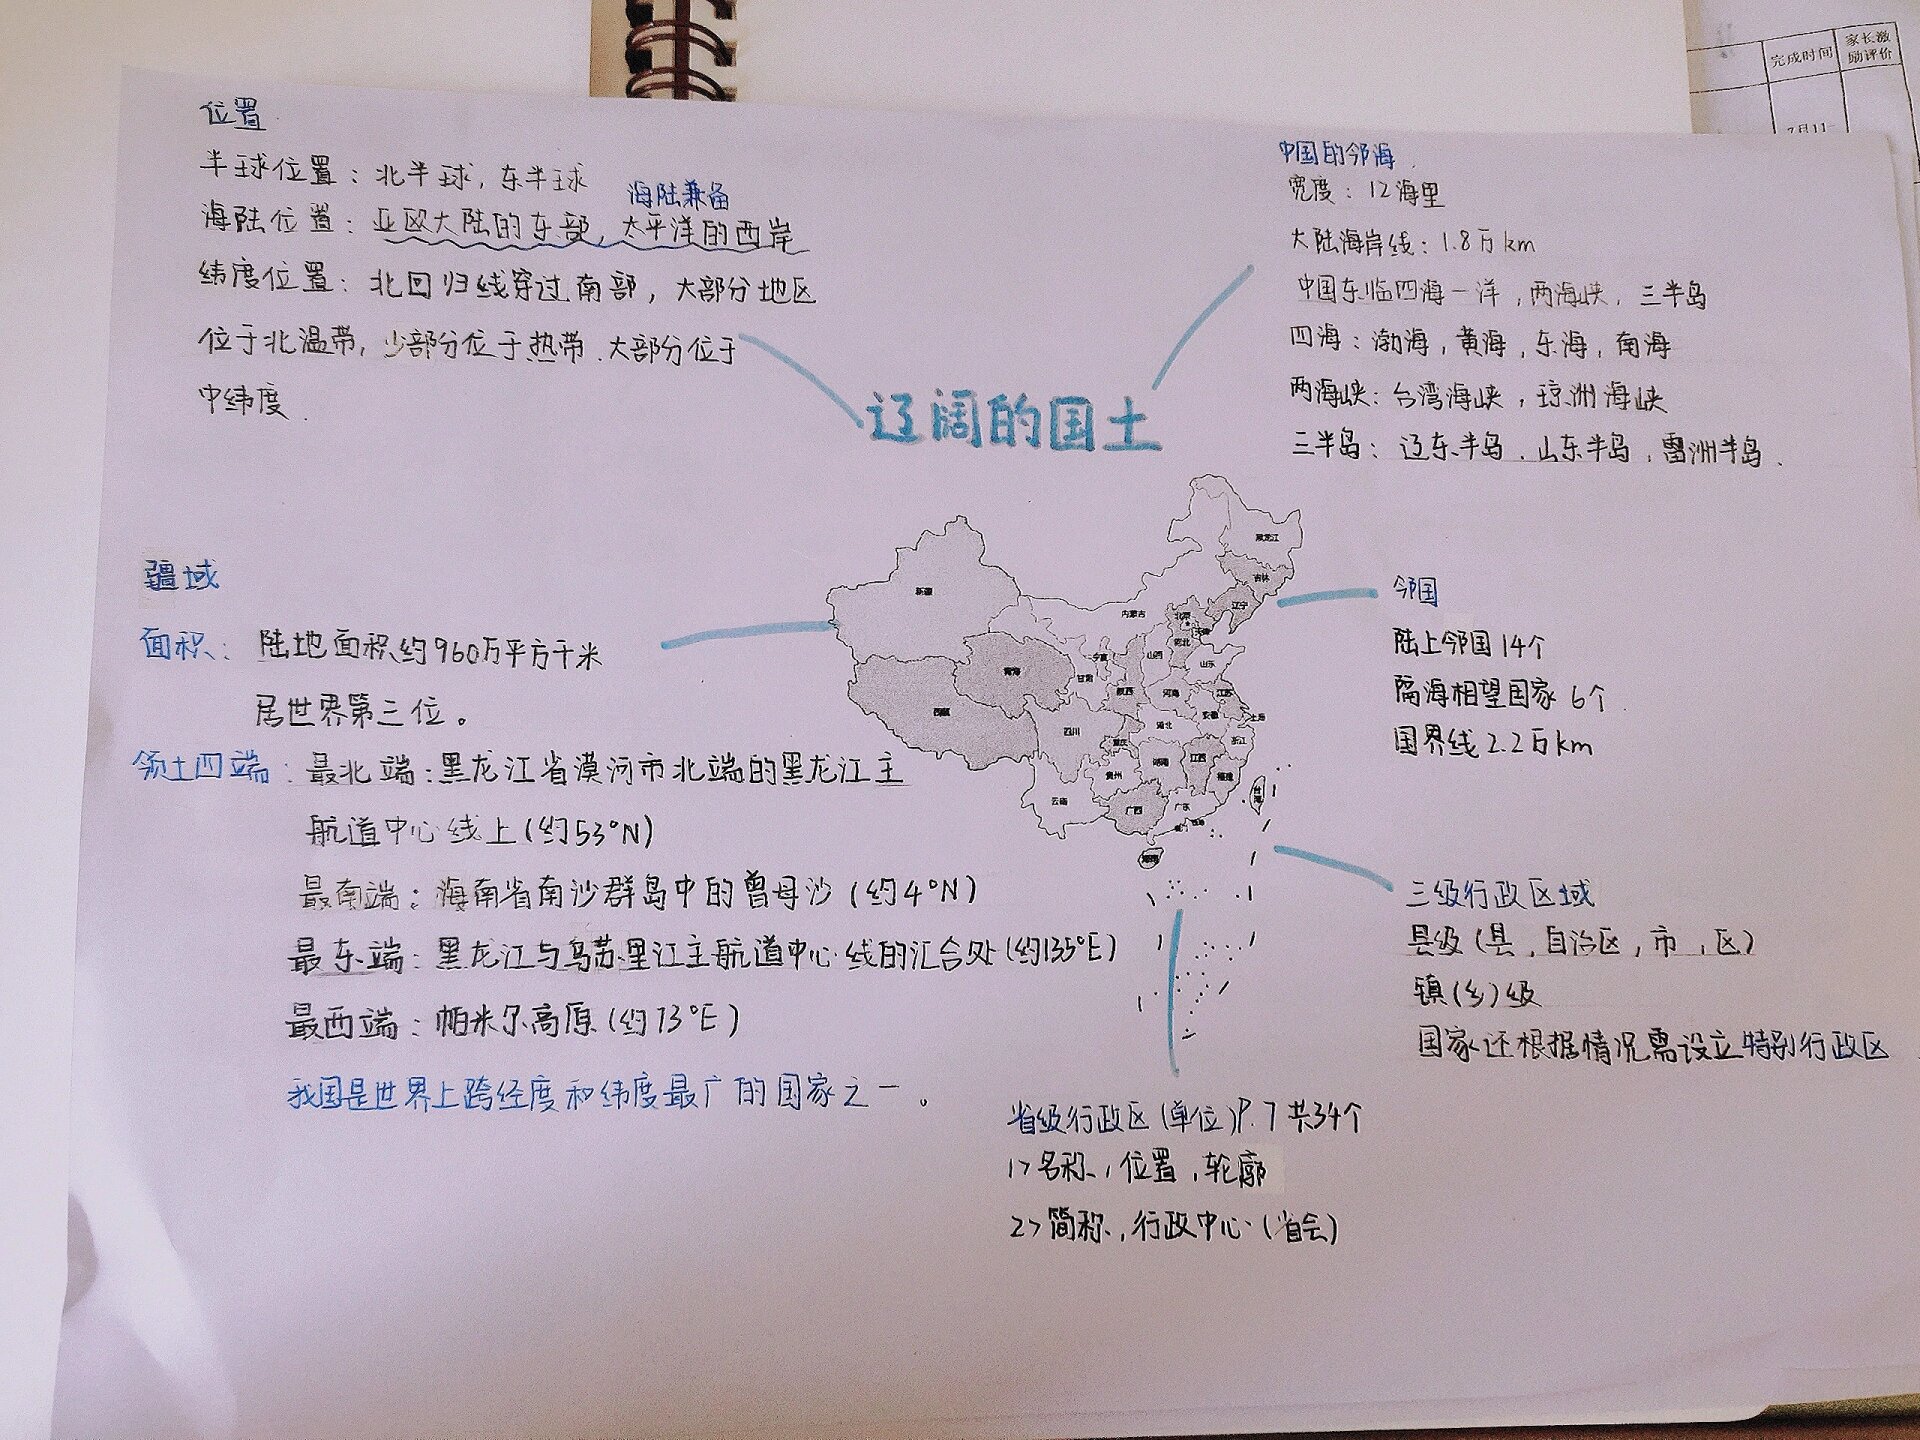 完成时间
家长激
励评价
7月11
位置
半球位置：北半球，东半球
海陆兼备
海陆位置：亚欧大陆的东部，太平洋的西岸
纬度位置：北回归线穿过南部，大部分地区
位于北温带，少部分位于热带．大部分位于
中纬度．
中国的邻海
宽度：12海里
大陆海岸线：1.8万km
中国东临四海一洋，两海峡，三半岛
四海：渤海，黄海，东海，南海
两海峡：台湾海峡，琼洲海峡
三半岛：辽东半岛．山东半岛，雷洲半岛．
辽阔的国土
疆域
面积：陆地面积约960万平方千米
居世界第三位。
领土四端：最北端：黑龙江省漠河市北端的黑龙江主
航道中心线上（约53°N）
最南端：海南省南沙群岛中的曾母沙（约4°N）
最东端：黑龙江与乌苏里江主航道中心线的汇合处（约135°E）
最西端：帕米尔高原（约73°E）
我国是世界上跨经度和纬度最广的国家之一。
黑龙江
吉林
辽宁
新疆
内蒙古
北京
天津
河北
山西
山东
宁夏
青海
甘肃
陕西
河南
江苏
西藏
安徽
上海
四川
湖北
重庆
浙江
湖南
江西
贵州
福建
云南
广西
广东
台湾
海南
邻国
陆上邻国14个
隔海相望国家6个
国界线2.2万km
三级行政区域
县级（县，自治区，市，区）
镇（乡）级
国家还根据情况需设立特别行政区
省级行政区（单位）P.7共34个
1>名称，位置，轮廓
2>简称，行政中心（省会）